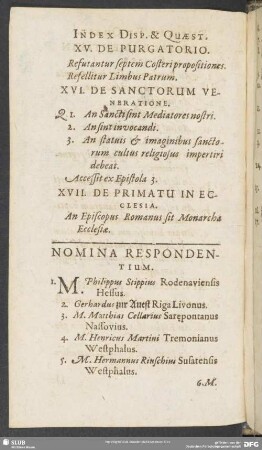 INDEX DISP. & QUÆST.
XV. DE PURGATORIO.
Refutantur septem Costeri propositiones.
Refellitur Limbus Patrum.
XVI. DE SANCTORUM VE-
NERATIONE.
Q 1. An Sancti sint Mediatores nostri.
2. An sint invocandi.
3. An statuis & imaginibus sancto-
rum cultus religiosus impertiri
debeat.
Accessit ex Epistola 3.
XVII. DE PRIMATU IN EC-
CLESIA.
An Episcopus Romanus sit Monarcha
Ecclesiæ.
NOMINA RESPONDEN-
TIUM.
1. M. Philippus Stippius Rodenaviensis
Hessus.
2. Gerhardus zur Avest Riga Livonus.
3. M. Matthias Cellarius Sarępontanus
Nassovius.
4. M. Henricus Martini Tremonianus
Westphalus.
5. M. Hermannus Rinschius Susatensis
Westphalus.
6. M.
SLUB
DFG